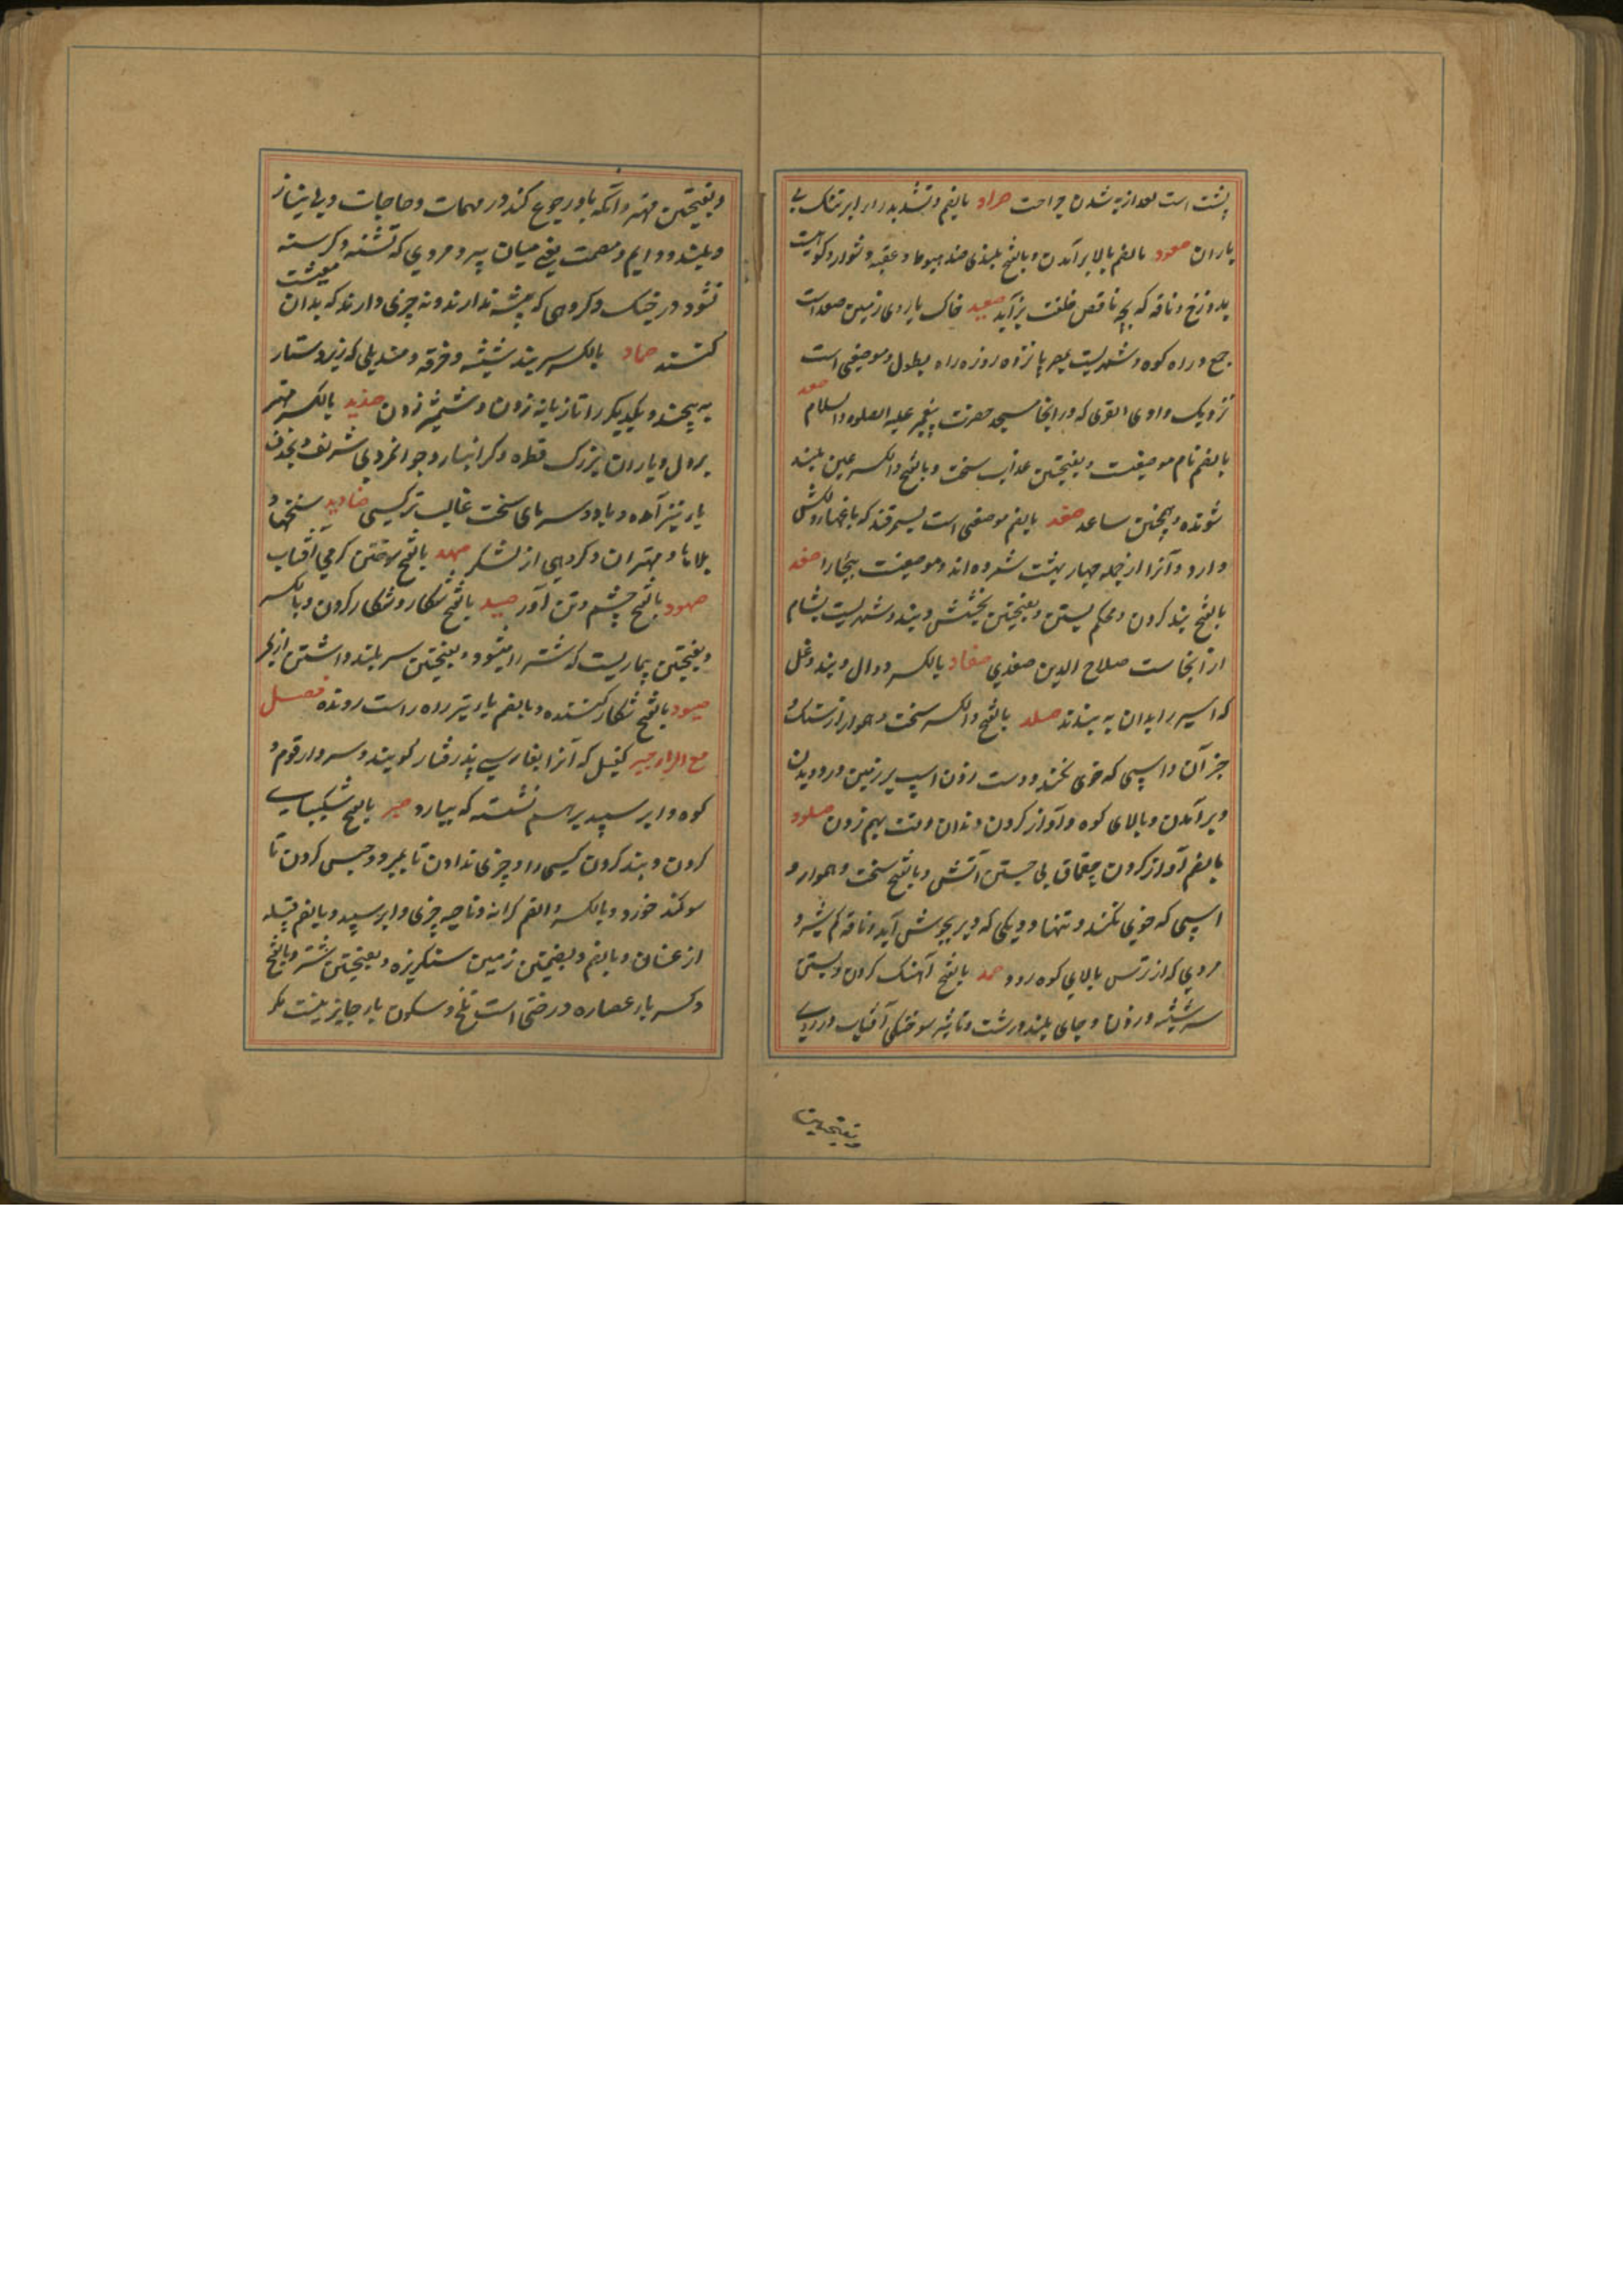 پشت است بعد از به شدن جراحت صراد بالضم و تشدید را ابر تنک بی
باران صعود بالضم بالا برآمدن و بالفتح بلندی ضد هبوط و عقبه دشوار و کوهیست
بدوزخ و ناقه که بچه ناقص خلقت بزاید صعید خاک یا روی زمین صعدات
جمع و راه کوه و شهریست بمصر پانزده روزه راه بطول و موضعی است
نزدیک وادی القری که در اینجا مسجد حضرت پیغمبر علیه الصلوه والسلام صعد
بالضم نام موضعیست و بفتحتین عذاب سخت و بالفتح و الکسر عین بلند
شونده و همچنین ساعد صغد بالضم موضعی است بسمرقند که باغهاء دلکش
دارد و آنرا از جمله چهار بهشت شمرده اند و موضعیست ببخارا صفد
بالفتح بند کردن و محکم بستن و بفتحتین بخشش و بند و شهریست بشام
از آنجاست صلاح الدین صفدی صفاد بالکسر دوال و بند و غل
که اسیر را بدان به بندند صلد بالفتح و الکسر سخت و هموار از سنک و
جز آن و اسپی که خوی نکند و دست زدن اسپ بر زمین در دویدن
و برآمدن و بالای کوه و آواز کردن دندان وقت بهم زدن صلود
بالضم آواز کردن چقماق بی جستن آتش و بالفتح سخت و هموار و
اسپی که خوی نکند و تنها و دیکی که دیر بجوش آید و ناقه کم شیر و
مردی که از ترس بالای کوه رود صمد بالفتح آهنک کردن و بستن
سر شیشه و زدن و جای بلند درشت و تاثیر سوختکی آفتاب در روی
بفتحتین
و بفتحتین مهتر و آنکه باو رجوع کنند در مهمات و حاجات و بی نیاز
و بلند و دایم و مصمت یعنی میان پر و مردی که تشنه و کرسنه
نشود در جنک و کروهی که پیشه ندارند و نه چیزی دارند که بدان معیشت
کنند صماد بالکسر سربند شیشه و خرقه و مندیلی که زیر دستار
به پیچند و یکدیکر را تازیانه زدن و شمشیر زدن صندید بالکسر مهتر
بردل و باران بزرک قطره و کرانبار و جوانمردی شریف و بحذف
یا نیز آمده و باد و سرمای سخت غالب تر کیسی صنادید سختیها و
بلاها و مهتران و کروهی از لشکر صهد بالفتح سوختن کرمی آفتاب
صهود بالفتح چشم و تن آور صید بالفتح شکار و شکار کردن و بالکسر
و بفتحتین بیماریست که شتر را میشود و بفتحتین سر بلند داشتن از کبر
صیود بالفتح شکار کننده و بالضم یا و تیز راه راست رونده فصل
مع الراء صبیر کفیل که آنرا بفارسی پذرفتار کویند و سردار قوم و
کوه و ابر سپید برهم نشسته که ببارد صبر بالفتح شکیبایی
کردن و بند کردن کسی را و چیزی ندادن تا بمیرد و حبس کردن تا
سوکند خورد و بالکسر و الضم کرانه و ناحیه چیزی و ابر سپید و بالضم قبیله
از غسان و بالضم و بضمتین زمین سنکریزه و بفتحتین شتر و بالفتح
و کسر با عصاره درختی است تلخ و سکون با جایز نیست مکر